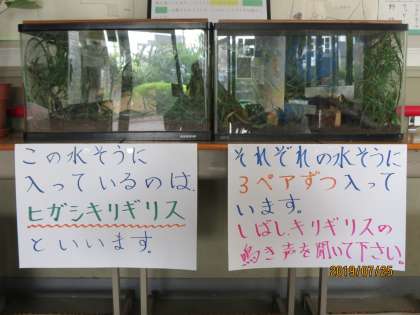 この水そうに
入っているのは、
ヒガシキリギリス
といいます。
それぞれの水そうに
3ペアずつ入って
います。
しばし、キリギリスの
鳴き声を聞いて下さい。
2019/07/25